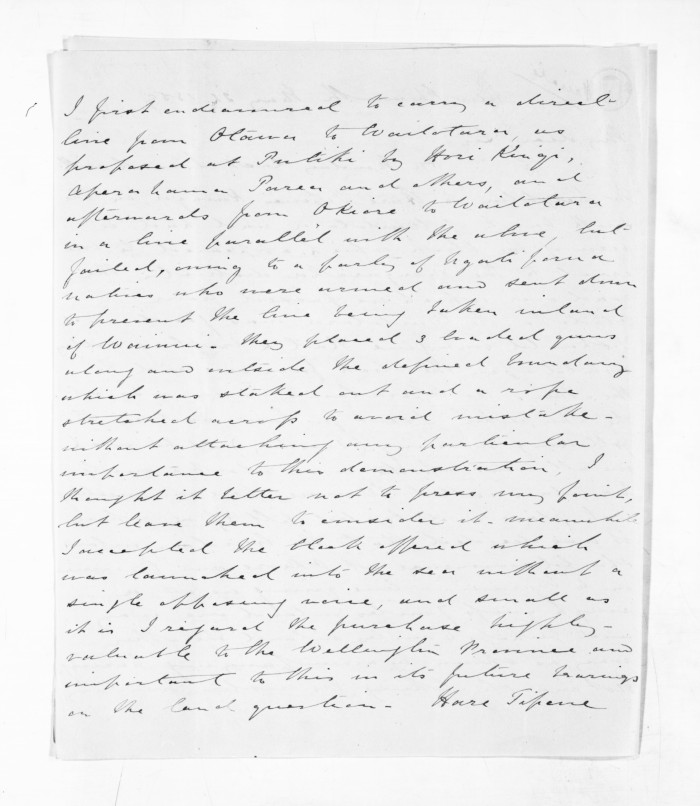 I first endeavoured to carry a direct
line from Otawa to Waitotara, as
proposed at Putiki by Hori Kingi,
Aperahama Parea and others, and
afterwards from Okiore to Waitotara
in a line parallel with the above, but
failed, owing to a party of Ngati
natives who were armed and sent down
to prevent the line being taken inland
of Wainui - they placed 3 loaded guns
along and outside the defined boundary
which was staked out and a rope
stretched across to avoid mistake -
without attaching any particular
importance to this demonstration, I
thought it better not to press my point,
but leave them to consider it - meanwhile
I accepted the block offered which
was launched into the sea without a
single opposing voice, and small as
it is I regard the purchase highly -
valuable to the Wellington Province and
important to this in its future bearings
on the land question - Hare Tipene